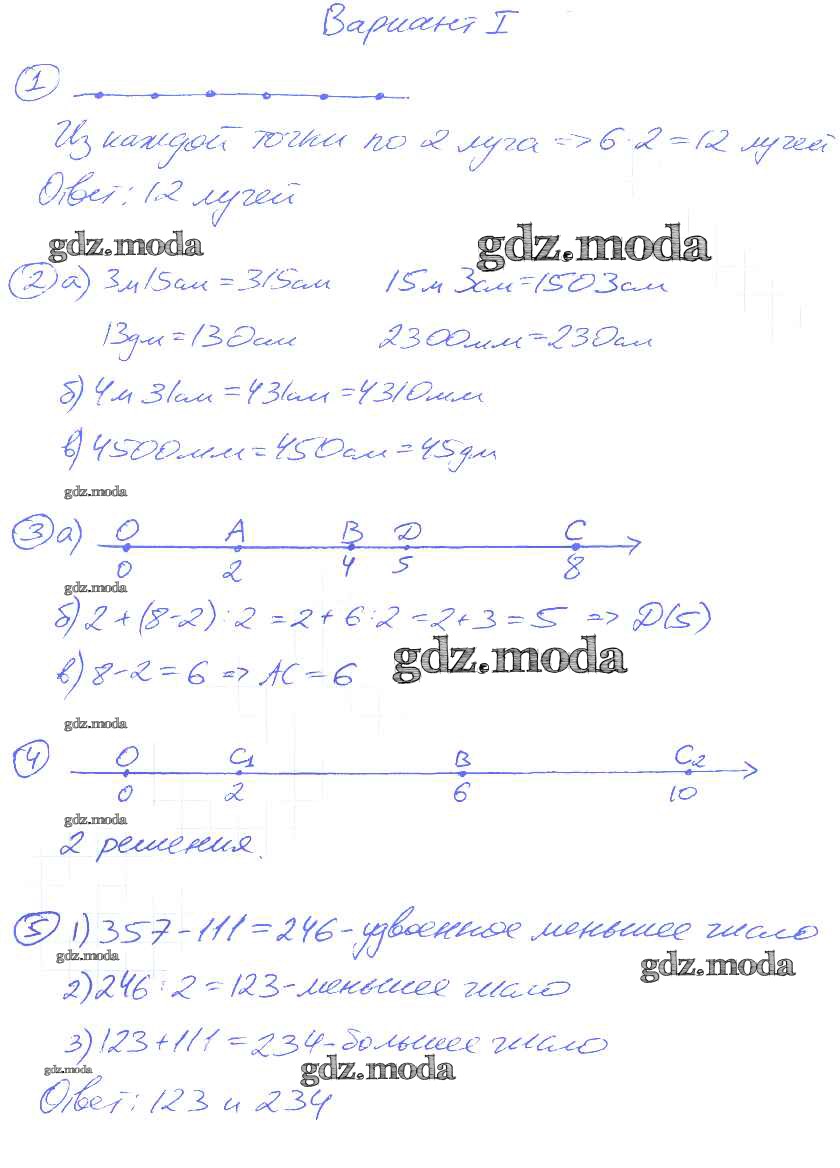 Вариант I
1
Из каждой точки по 2 луча => 6·2=12 лучей
Ответ: 12 лучей
gdz.moda gdz.moda
2 а) 3м15см=315см 15м 3см=1503см
13дм=130см 2300мм=230см
б) 4м 31см=431см=4310мм
в) 4500мм=450см=45дм
gdz.moda
3 а) O A B D C
0 2 4 5 8
gdz.moda
б) 2+(8-2):2=2+6:2=2+3=5 => D(5)
gdz.moda
в) 8-2=6 => AC=6
gdz.moda
4 O C1 B C2
0 2 6 10
gdz.moda
2 решения.
5 1) 357-111=246-удвоенное меньшее число
gdz.moda gdz.moda
2) 246:2=123-меньшее число
3) 123+111=234-большее число
gdz.moda gdz.moda
Ответ: 123 и 234